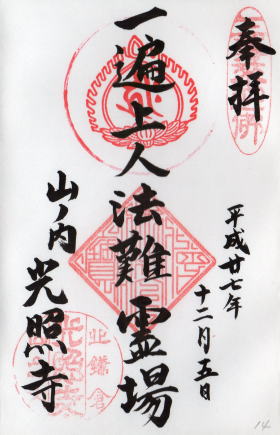 奉拝
平成廿七年
十二月五日
一遍上人法難霊場
山ノ内 光照寺
北鎌倉
14